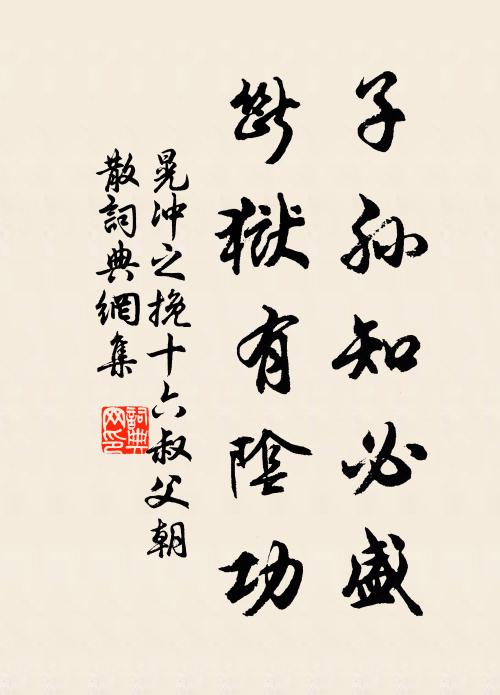 子孫知必盛
斷獄有陰功
晁沖之挽十六叔父朝
散詞典網集
詞典
网印